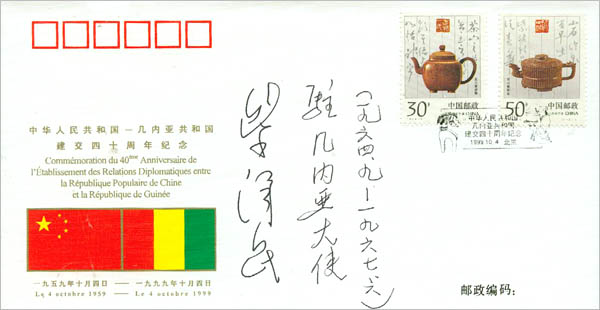 中华人民共和国－几内亚共和国
建交四十周年纪念
Commémoration du 40ème Anniversaire de
l'Établissement des Relations Diplomatiques entre
la République Populaire de Chine
et la République de Guinée
一九五九年十月四日——一九九九年十月四日
Le 4 octobre 1959 — Le 4 octobre 1999
30分
中国邮政
CHINA
50分
中国邮政
CHINA
中华人民共和国
几内亚共和国
建交四十周年纪念
1999.10.4 北京
(一九六四、九—一九六七、六)
驻几内亚大使
柴泽民
邮政编码：